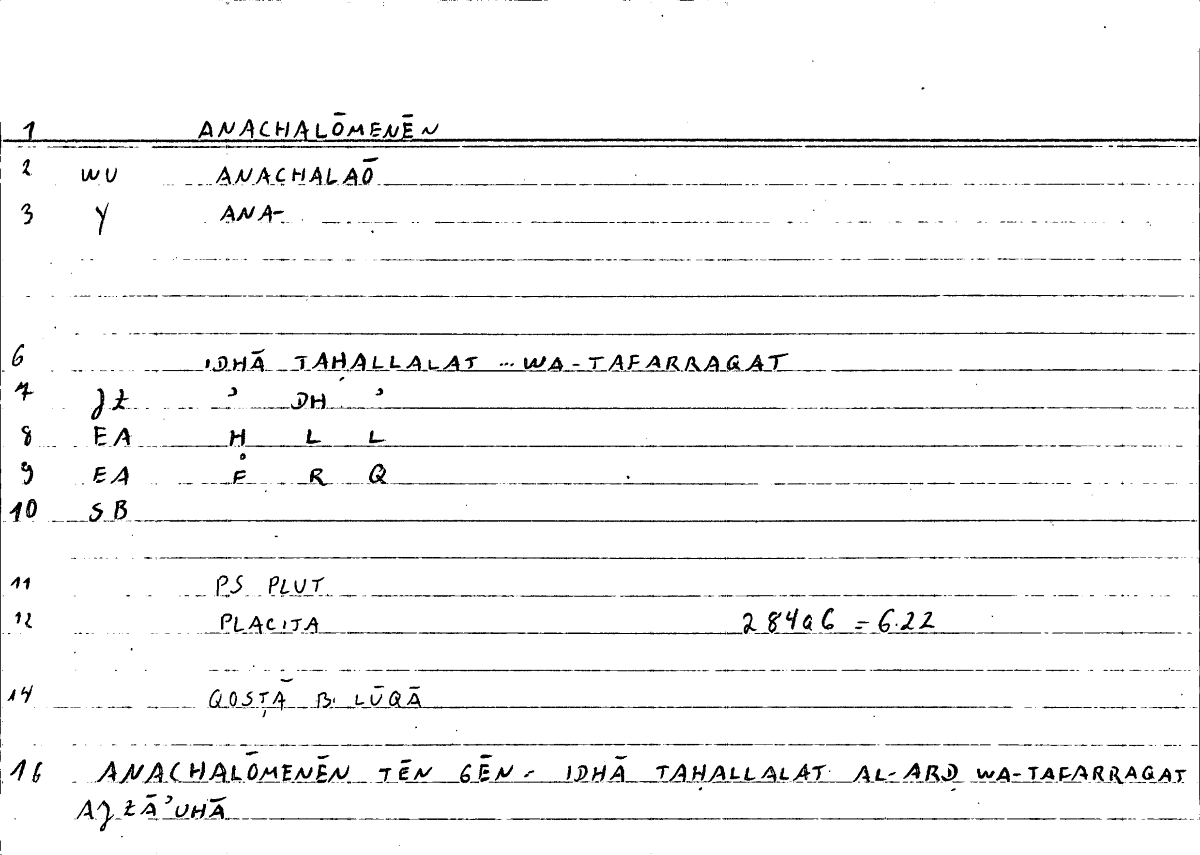 1 ANACHALŌMENĒN
2 WU ANACHALAŌ
3 Y ANA-
6 IDHĀ TAḤALLALAT ... WA-TAFARRAQAT
7 Jż ʾ DH ʾ
8 EA Ḥ L L
9 EA F R Q
10 SB
11 PS PLUT
12 PLACITA 284a6 = 6.22
14 QOSṬĀ B. LŪQĀ
16 ANACHALŌMENĒN TĒN GĒN - IDHĀ TAḤALLALAT AL-ARḌ WA-TAFARRAQAT
AJZĀʾUHĀ